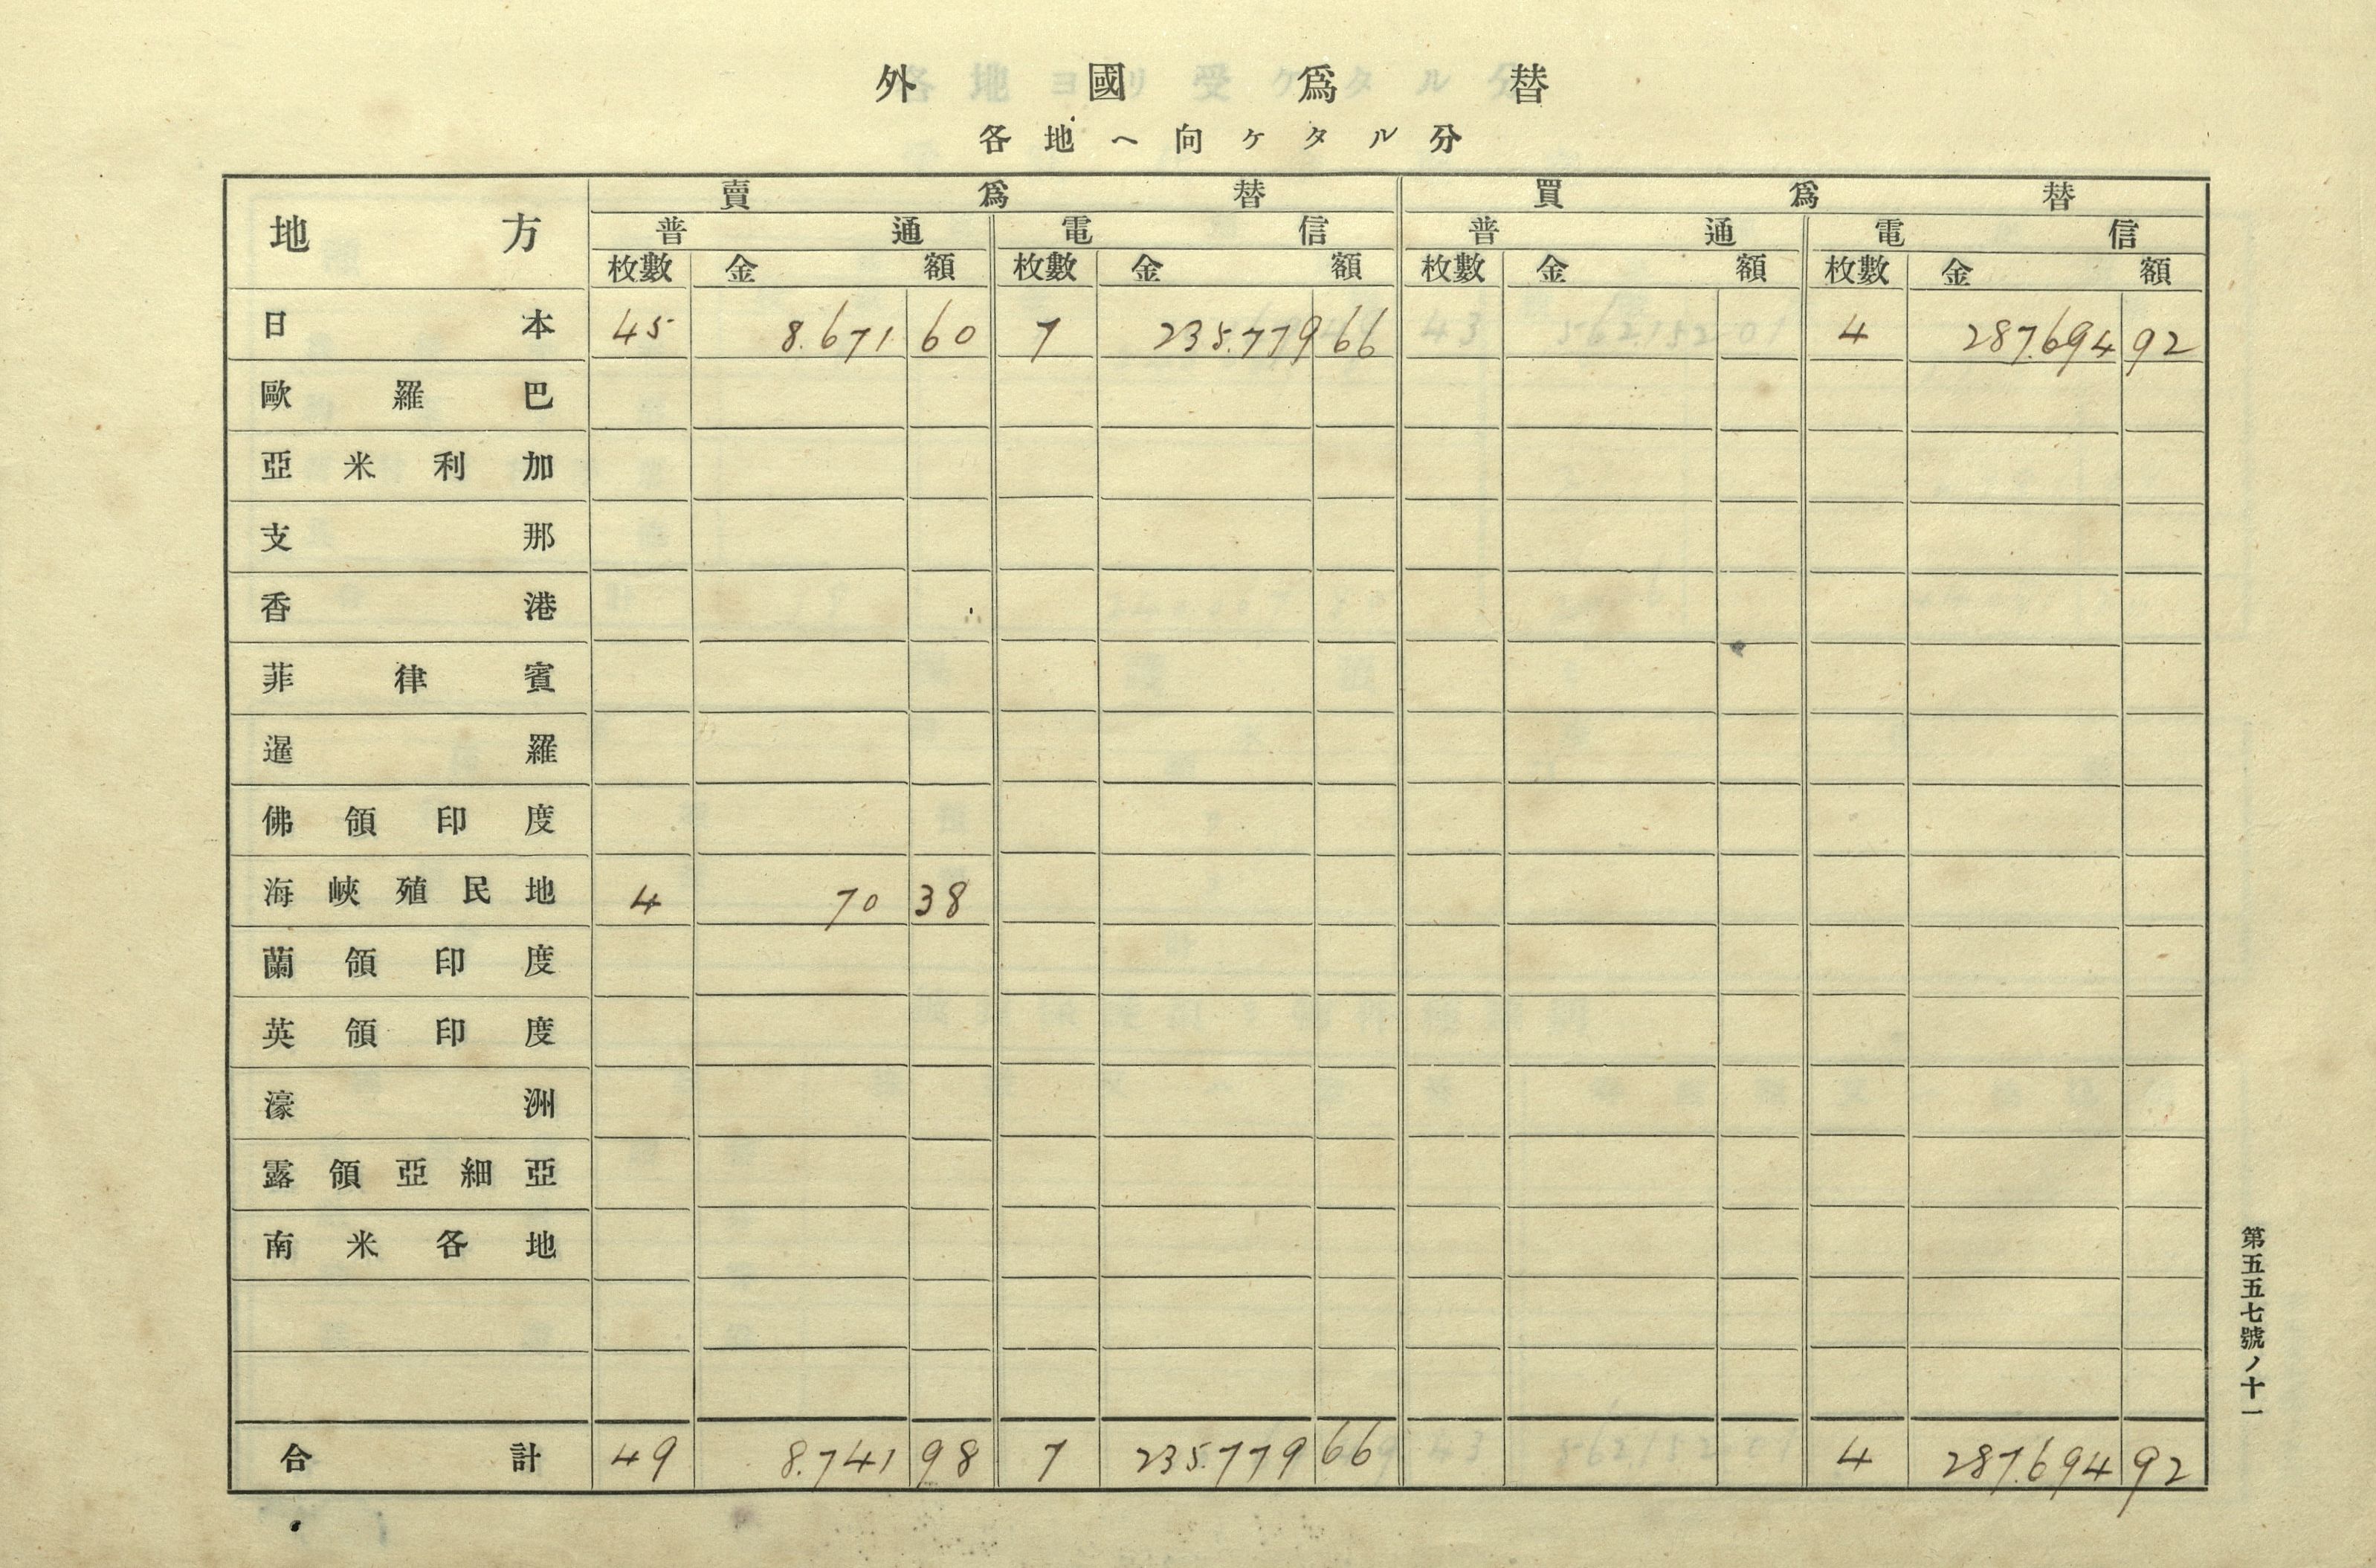 外國爲替
各地ヘ向ケタル分
地方 賣爲替 買爲替
普通 電信 普通 電信
枚數 金額 枚數 金額 枚數 金額 枚數 金額
日本 45 8.671 60 7 235.779 66 4 287.694 92
歐羅巴
亞米利加
支那
香港
菲律賓
暹羅
佛領印度
海峽殖民地 4 70 38
蘭領印度
英領印度
濠洲
露領亞細亞
南米各地
合計 49 8.741 98 7 235.779 66 4 287.694 92
第五五七號ノ十一